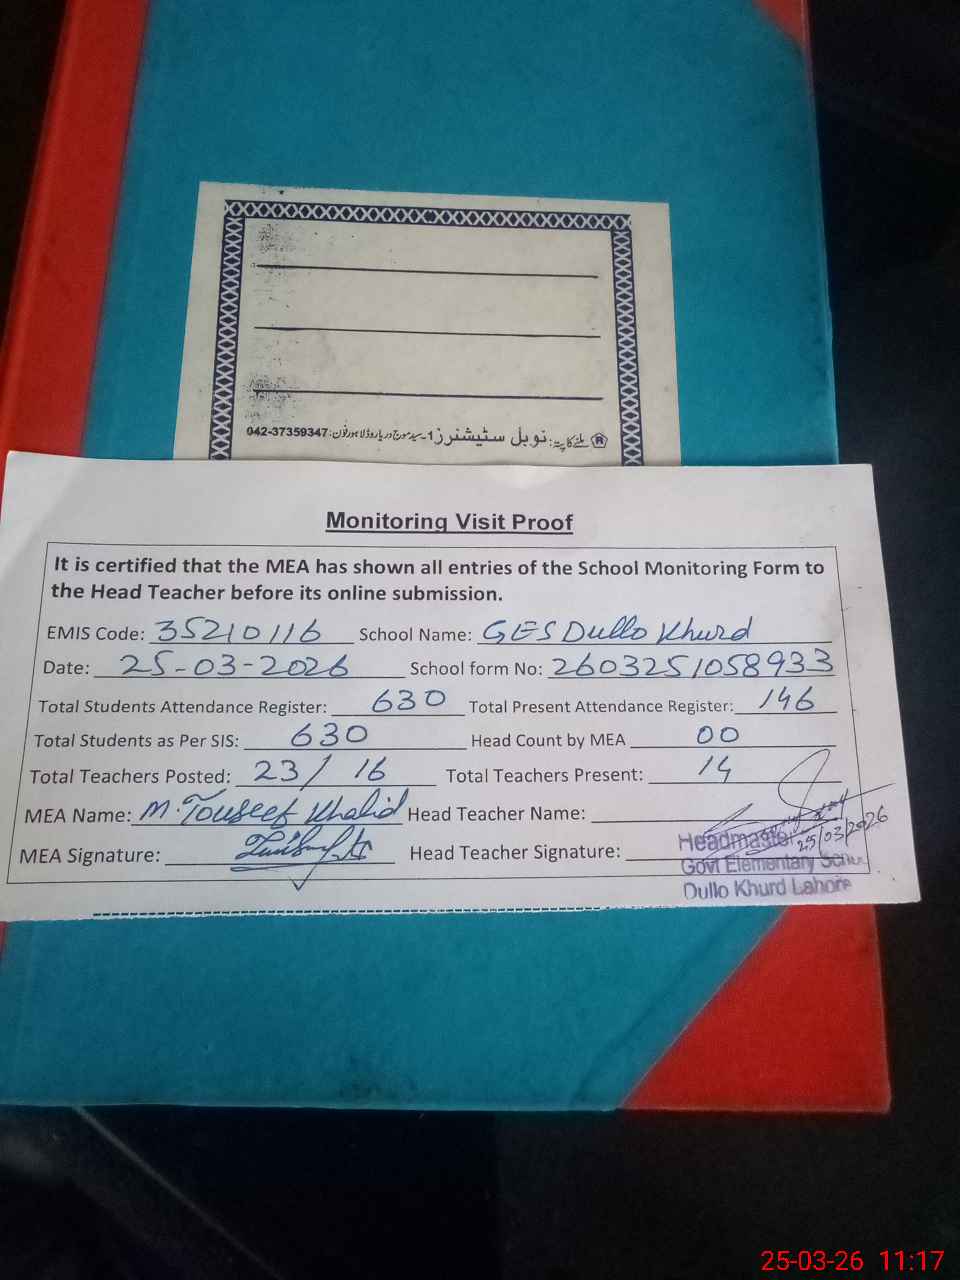 ملنے کا پتہ: نوبل سٹیشنرز 1-سید موج دریا روڈ لاہور فون: 042-37359347
Monitoring Visit Proof
It is certified that the MEA has shown all entries of the School Monitoring Form to
the Head Teacher before its online submission.
EMIS Code: 35210116 School Name: GES Dullo Khurd
Date: 25-03-2026 School form No: 2603251058933
Total Students Attendance Register: 630 Total Present Attendance Register: 146
Total Students as Per SIS: 630 Head Count by MEA 00
Total Teachers Posted: 23/16 Total Teachers Present: 14
MEA Name: M. Touseef Khalid Head Teacher Name:
MEA Signature: Head Teacher Signature:
25/03/2026
Headmaster
Govt Elementary
Dullo Khurd Lahore
25-03-26 11:17